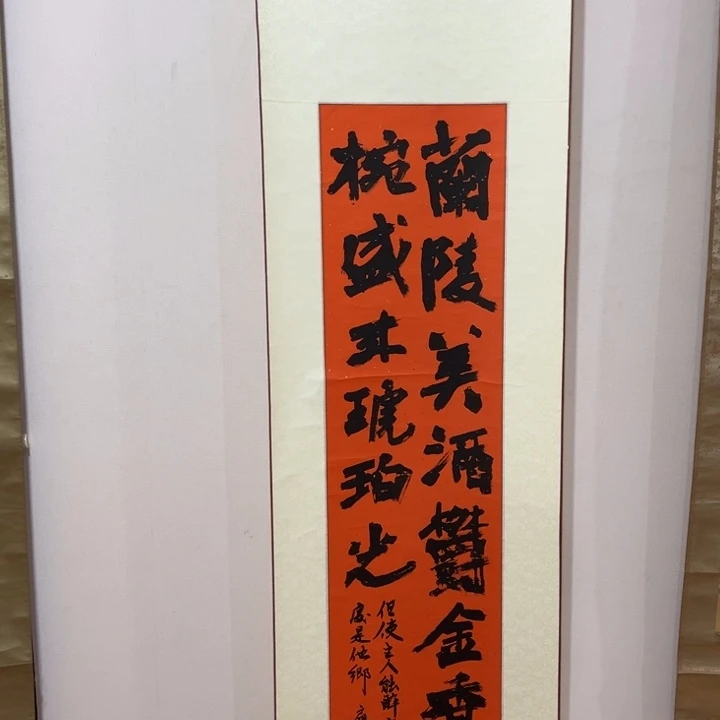 蘭陵美酒鬱金香
椀盛來琥珀光
但使主人能醉
處是他鄉